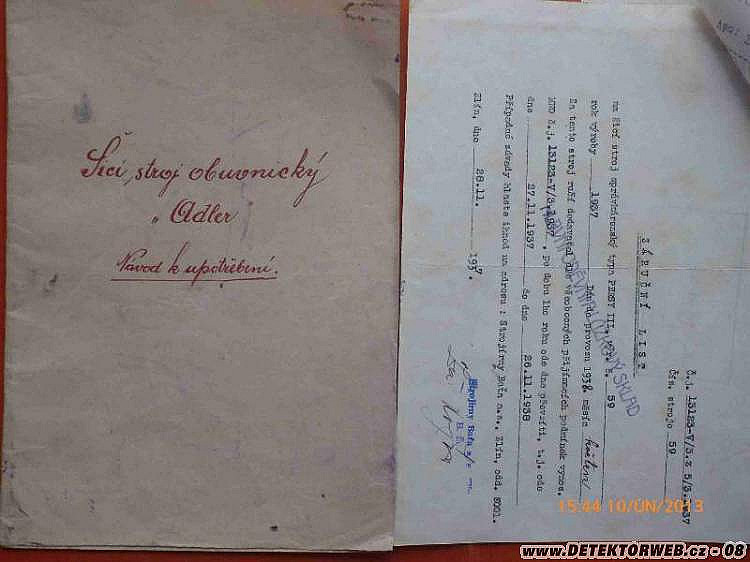 Šicí stroj obuvnický
„Adler
Návod k upotřebení.
Č.j. 13123-V/3.z 5/3.1937
Čís. stroje 59
ZÁRUČNÍ LIST
na šicí stroj správkárenský typu PEOSY III. 59
rok výroby 1937 Dán do provozu 1938 měsíc květen
Za tento stroj ručí dodavatel dle všeobecných přijímacích podmínek výnos.
MNO č.j. 13123-V/3.1937, po dobu 1ho roku ode dne převzetí, t.j. ode
dne 27.11.1937 do dne 26.11.1938
Případné závady hlaste ihned na adresu : Strojírny Baťa a.s., Zlín, odd.
Zlín, dne 28.11. 1937.
SKLAD
Strojírny Baťa
15:44 10/ÚN/2013
www.DETEKTORWEB.cz - 08